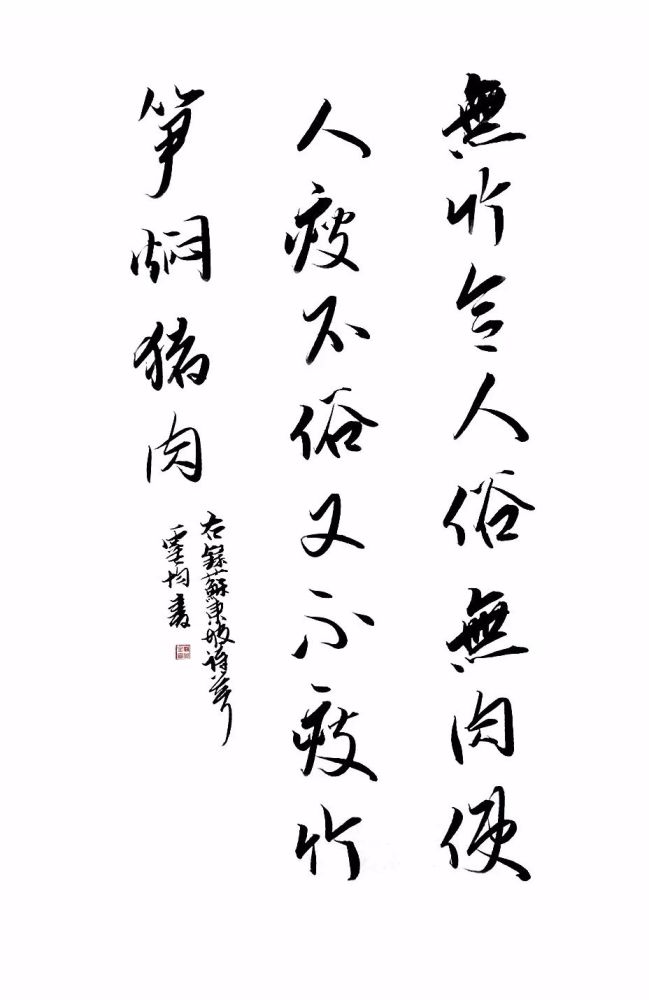 無竹令人俗無肉使
人瘦不俗又不瘦竹
笋焖猪肉
右錄蘇東坡詩
書